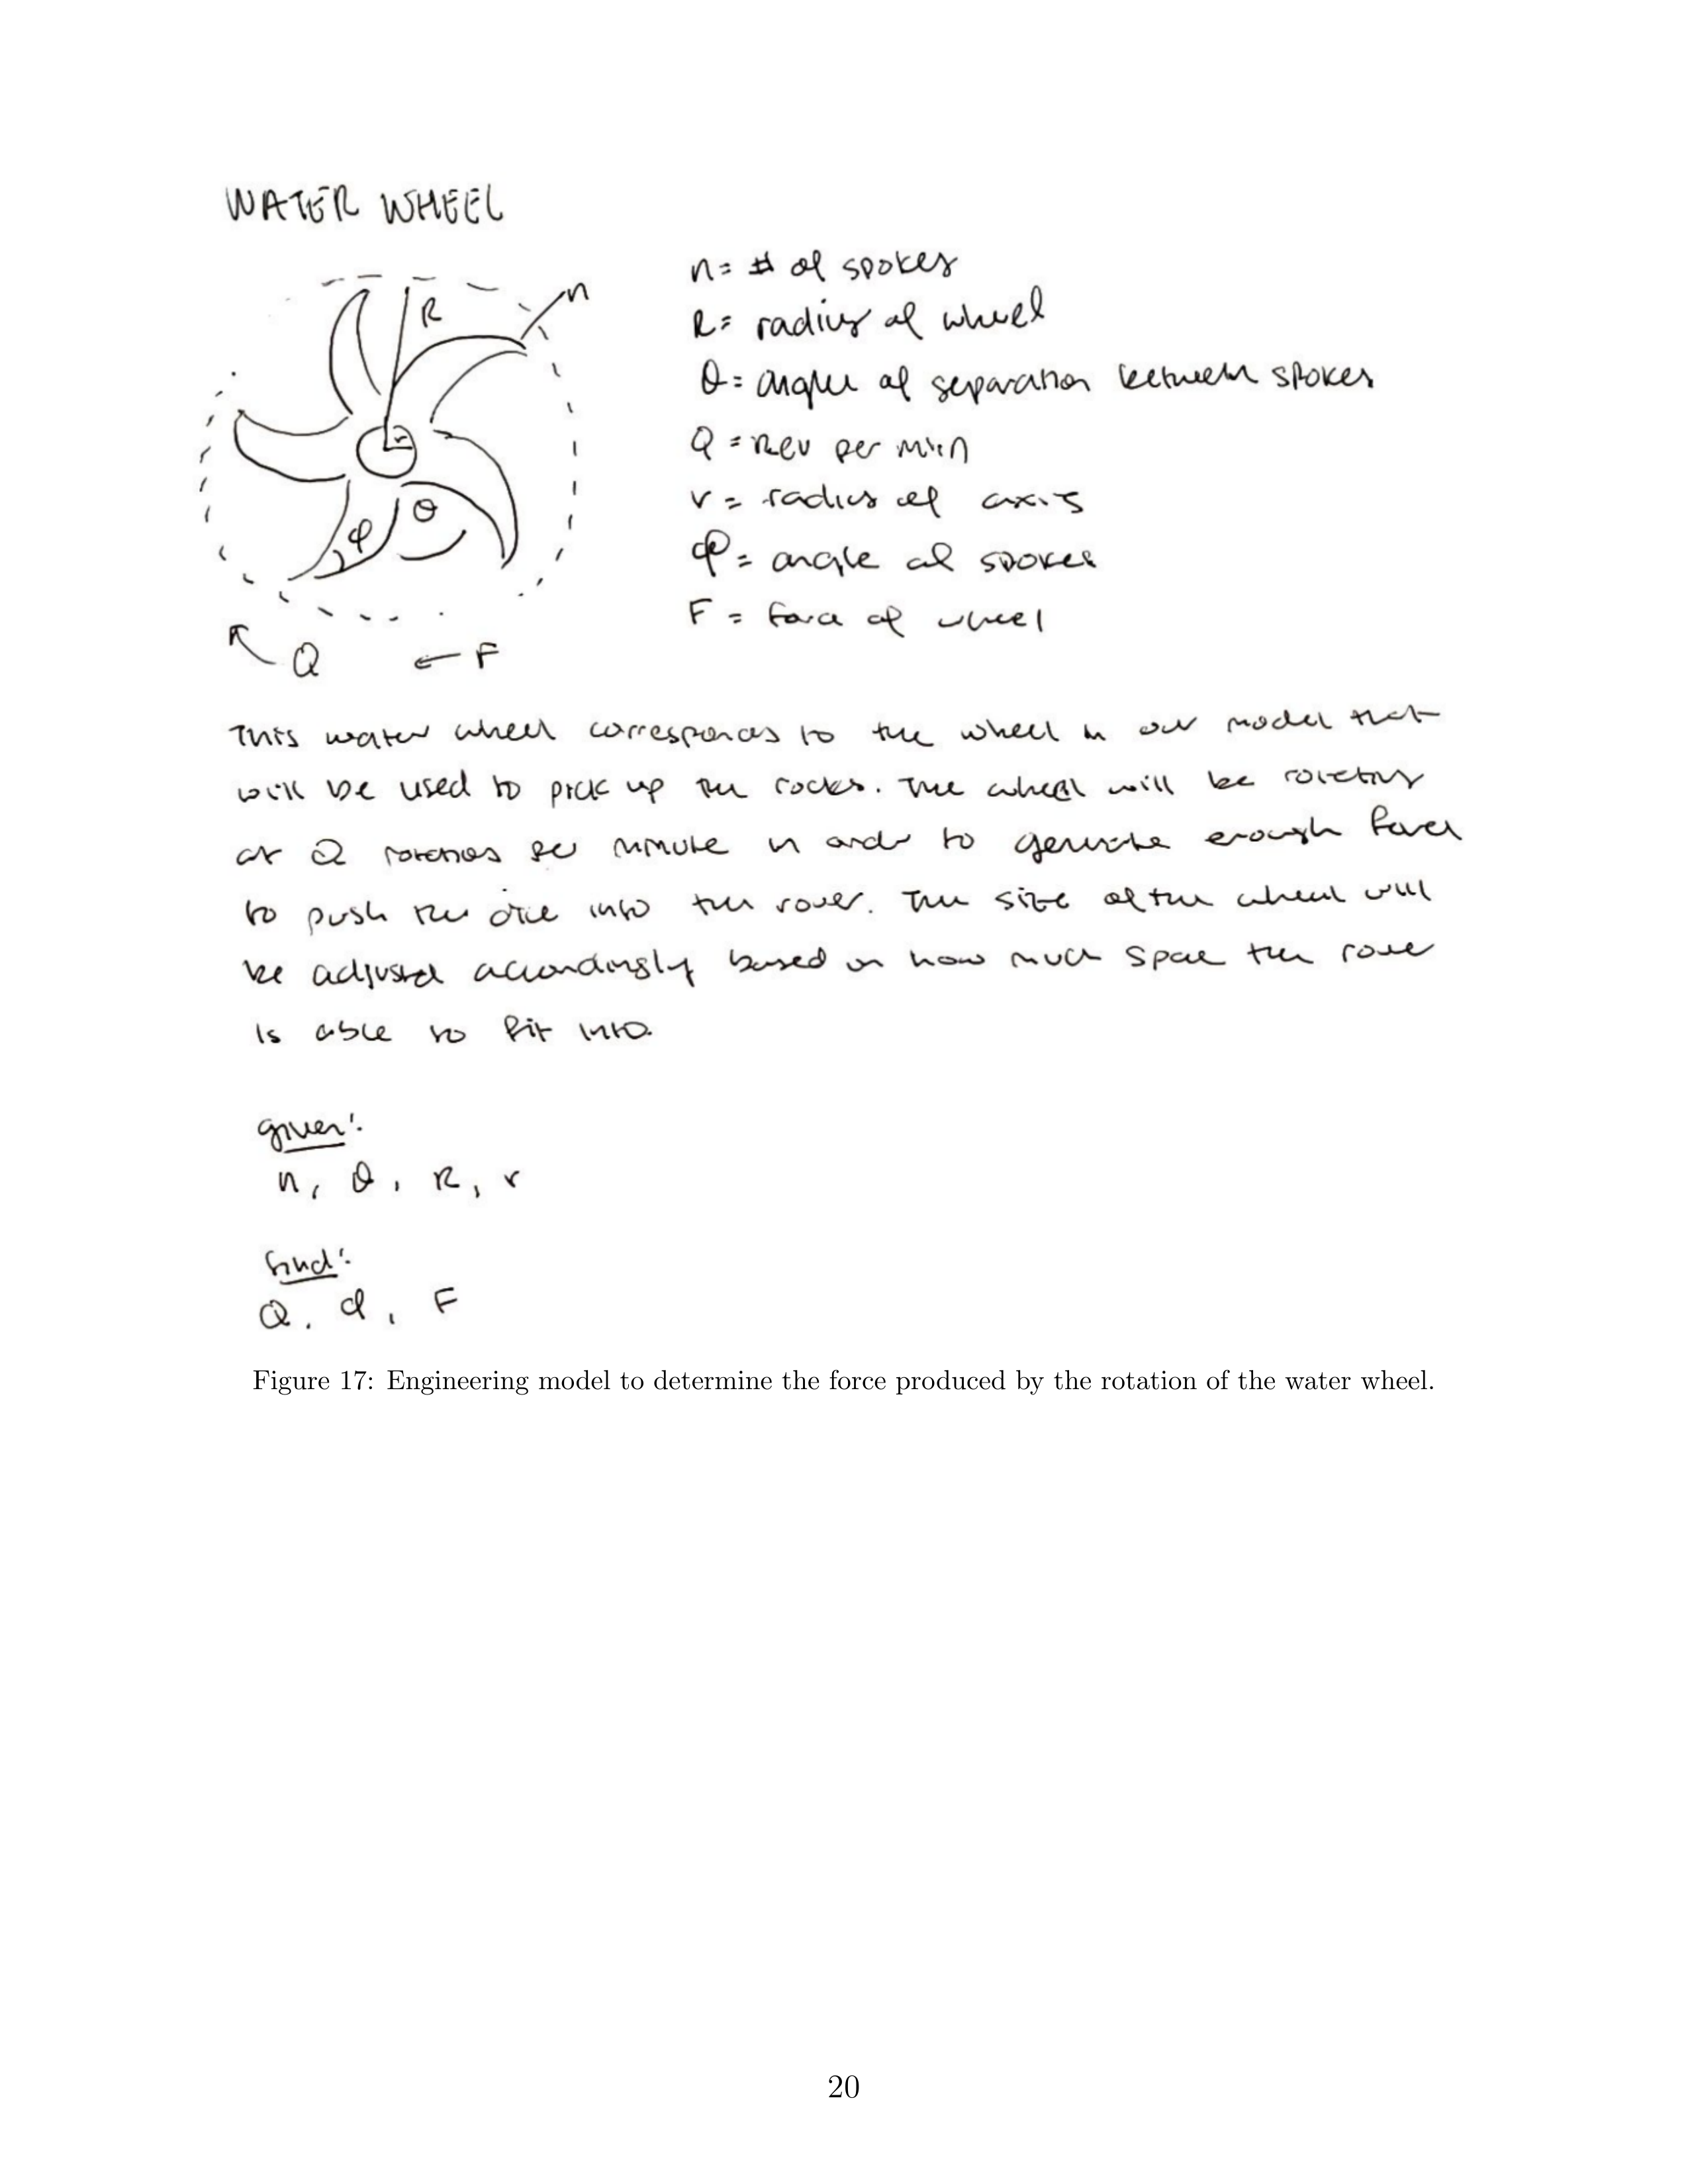 WATER WHEEL
n = # of spokes
R = radius of wheel
θ = angle of separation between spokes
Q = Rev per min
r = radius of axis
φ = angle of spokes
F = force of wheel
R
n
r
φ
θ
Q
← F
This water wheel corresponds to the wheel in our model that
will be used to pick up the rocks. The wheel will be rotating
at Q rotations per minute in order to generate enough force
to push the dice into the rover. The size of the wheel will
be adjusted accordingly based on how much space the rover
is able to fit into.
given:
n, θ, R, r
find:
Q, φ, F
Figure 17: Engineering model to determine the force produced by the rotation of the water wheel.
20